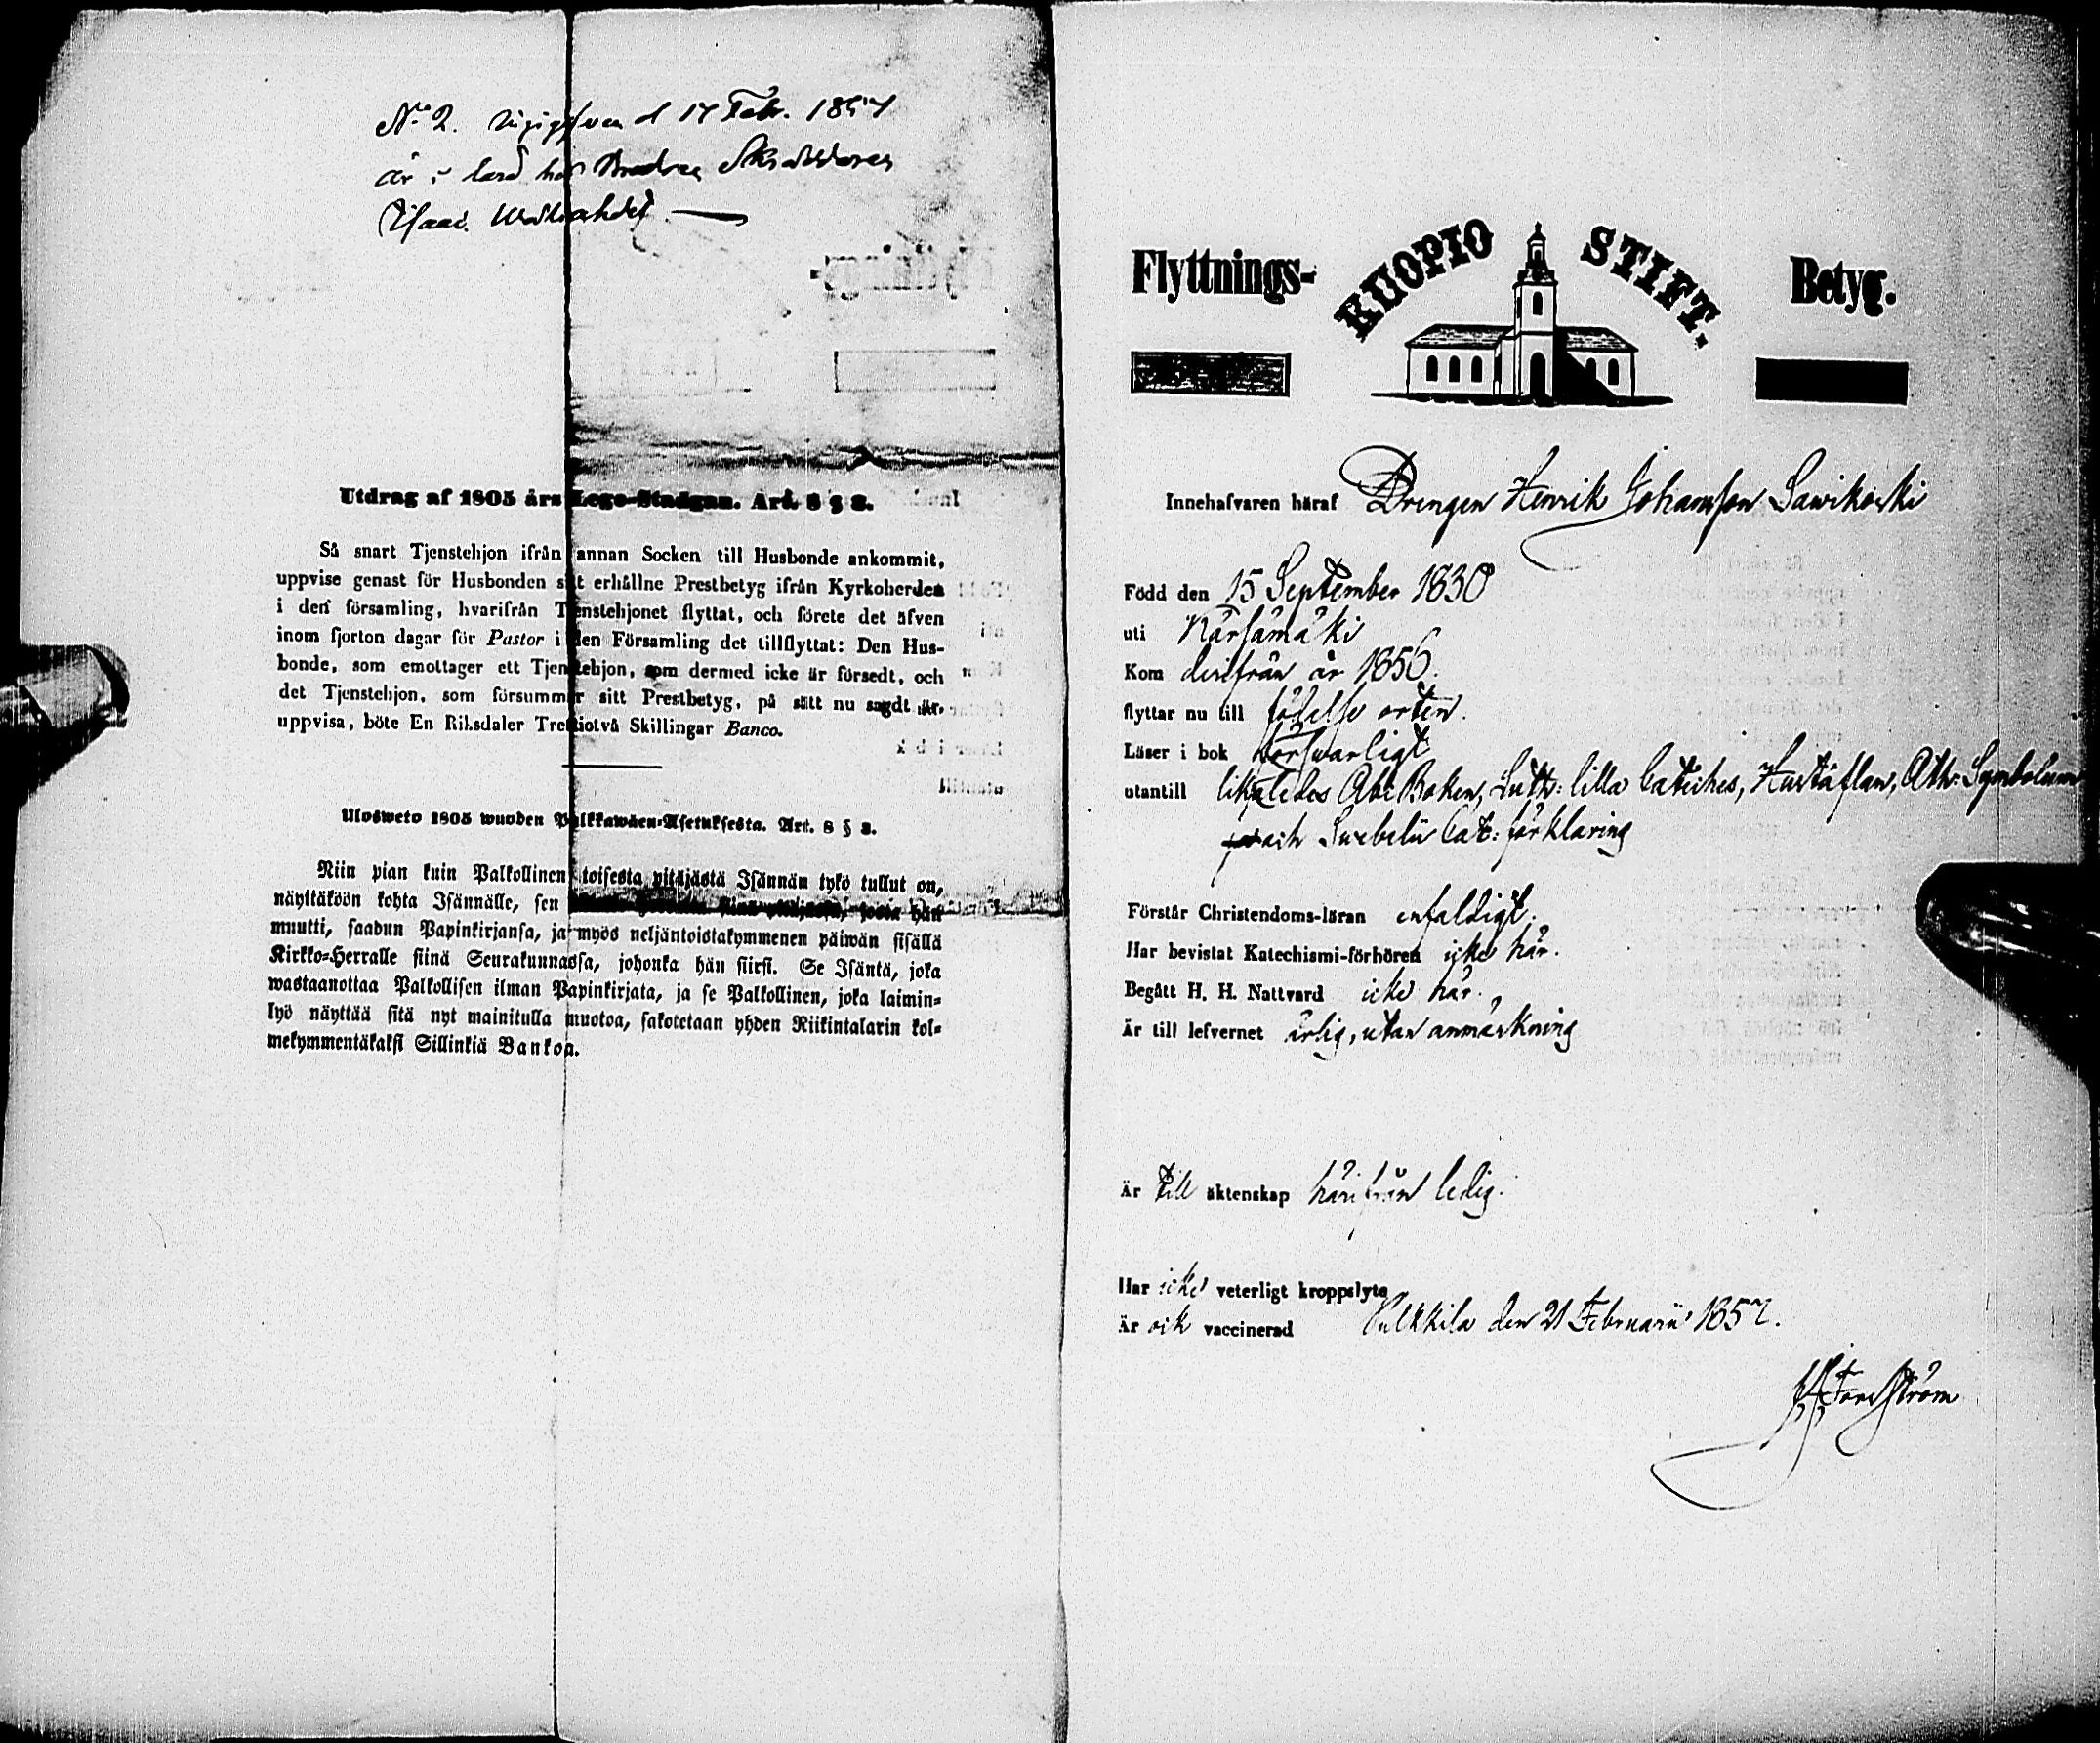 No 2. 17 Febr. 1857
är i hos Skräddaren
Isaac
Utdrag af 1805 års Lego-Stadgan. Art. 8 § 2.
Så snart Tjenstehjon ifrån annan Socken till Husbonde ankommit,
uppvise genast för Husbonden sitt erhållne Prestbetyg ifrån Kyrkoherden
i den församling, hvarifrån Tjenstehjonet flyttat, och förete det äfven
inom fjorton dagar för Pastor i den Församling det tillflyttat: Den Hus-
bonde, som emottager ett Tjenstehjon, som dermed icke är försedt, och
det Tjenstehjon, som försummar sitt Prestbetyg, på sätt nu sagdt är,
uppvisa, böte En Riksdaler Trettiotvå Skillingar Banco.
Ulosweto 1805 wuoden Palkkawäen-Asetuksesta. Art. 8 § 2.
Niin pian kuin Palkollinen toisesta pitäjästä Isännän tykö tullut on,
näyttäköön kohta Isännälle, sen josta hän
muutti, saadun Papinkirjansa, ja myös neljäntoistakymmenen päiwän sisällä
Kirkko-Herralle siinä Seurakunnassa, johonka hän siirsi. Se Isäntä, joka
wastaanottaa Palkollisen ilman Papinkirjata, ja se Palkollinen, joka laimin-
lyö näyttää sitä nyt mainitulla muotoa, sakotetaan yhden Riikintalarin kol-
mekymmentäkaksi Sillinkiä Bankoa.
Flyttnings- KUOPIO STIFT. Betyg.
Innehafvaren häraf Drengen Henrik Johansson Sawikoski
Född den 15 September 1830
uti Kärsämäki
Kom derifrån år 1856.
flyttar nu till födelse orten.
Läser i bok försvarligt
utantill likaledes Abc Boken, Luth: lilla Cateches, Hustaflan, Ath: Symbolum
och Swebelii Cat: förklaring
Förstår Christendoms-läran enfaldigt.
Har bevistat Katechismi-förhören icke här.
Begått H. H. Nattvard icke här.
Är till lefvernet ärlig, utan anmärkning
Är till äktenskap härifrån ledig.
Har icke veterligt kroppslyte
Är ock vaccinerad Pulkkila den 21 Februarii 1857.